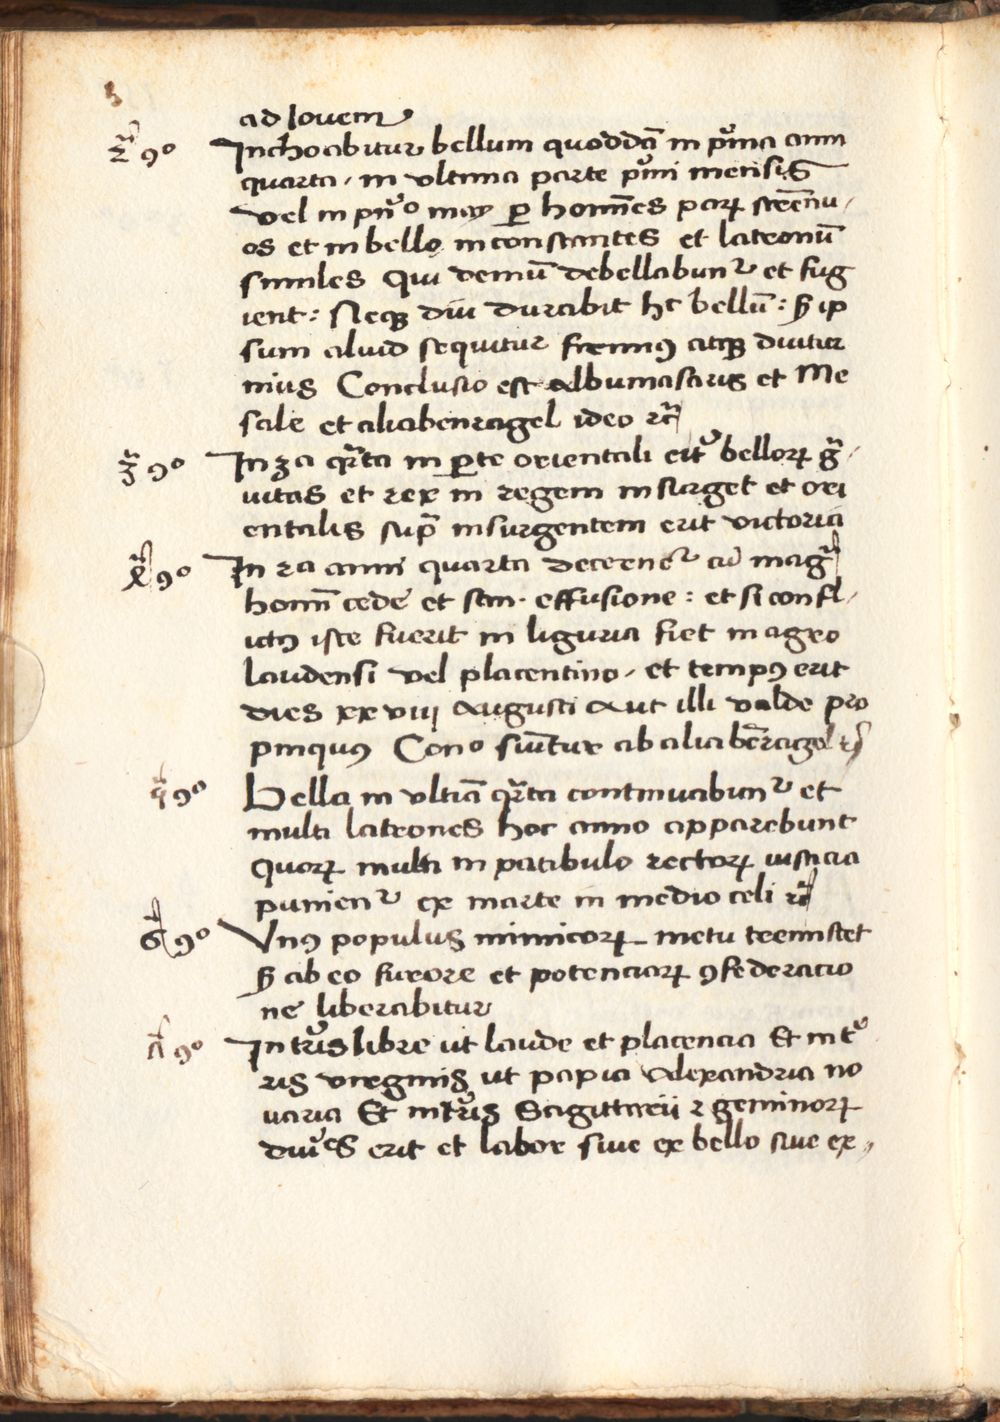 ad Iovem
2ª 9º Inchoabitur bellum quoddā in pͥma anni
quarta, in ultima parte pͥmi mensis
vel in pñº may ꝑ homīes parꝝ strēnu,
os et in bello inconstantes et latronū
similes Qui demū debellabunᵗ et fug
ient: Neqꝫ diu durabit hͨ bellū: sꝫ ip
sum aliud sequitur firmiꝰ atqꝫ diutur
nius Conclusio est albumasaris et Me
sale et aliabenragel ideo rc̄
3ª 9º In 3a qrͣta in ꝑte orientali eritͥ bellorꝝ gͣ,
uitas et rex in regem insurget et ori
entalis supͣ insurgentem erit victoria
4ª 9º In 2a anni quarta decerneᵗ cū magͣ
homī cede et san. effusione: et si confl,
ictꝰ iste fuerit in liguria fiet in agro
laudensi vel placentino, et tempꝰ erit
dies xxviij augusti aut illi valde pro
pinquꝰ Conº sūitur ab aliabēragel rc̄
5ª 9º Bella in ultīa qrͣta continuabunᵗ et
multi latrones hoc anno apparebunt
Quorꝝ multi in patibulo rectorꝝ iusticia
punienᵗ ex marte in medio celi rc̄
6ª 9º Vnꝰ populus inimicorꝝ metu tremiscet
sꝫ ab eo furore et potenciarꝝ ꝯfederacio
ne liberabitur
7ª 9º In trͥis libre ut laude et placencia Et in tͥ
ris virginis ut papia Alexandria no
uaria Et in trͥis Sagittarii ⁊ geminorꝝ
erit et labor siue ex bello siue ex,